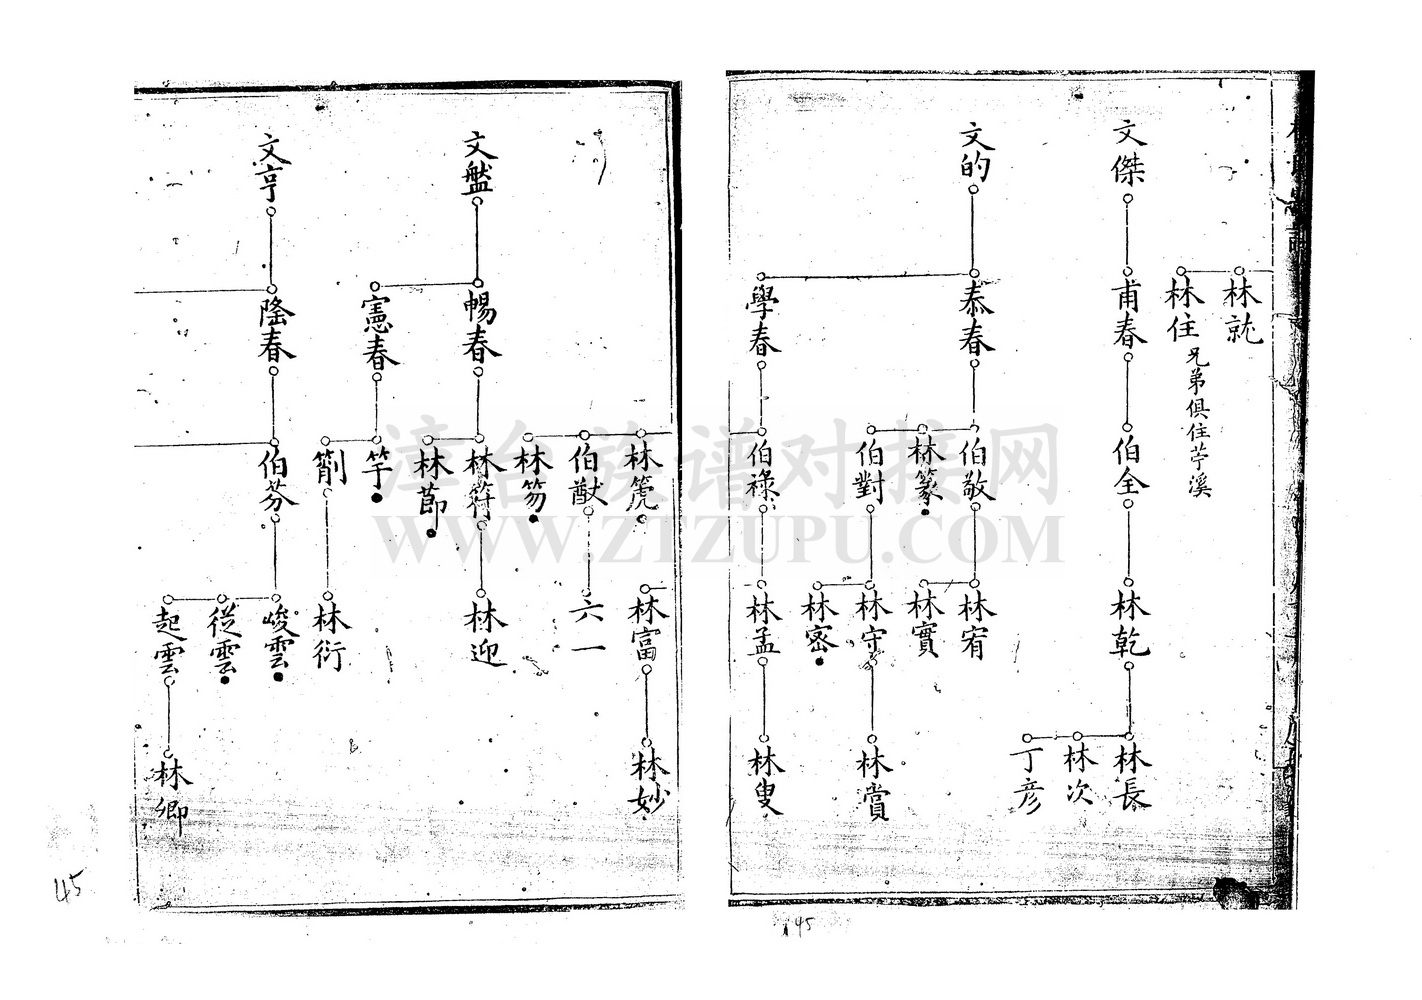 林就
林住
兄弟俱住苧溪
文傑
甫春
伯全
林乾
林長
林次
丁彦
文的
恭春
學春
伯敬
林篆
伯對
伯祿
林宥
林實
林守
林密
林孟
林賞
林叟
林箎
伯猷
林笏
林富
六一
林妙
文盤
暢春
憲春
林符
林節
竿
林迎
林衍
文亨
隆春
伯芬
峻雲
從雲
起雲
林卿
45
145
漳台族谱对接网
WWW.ZTZUPU.COM